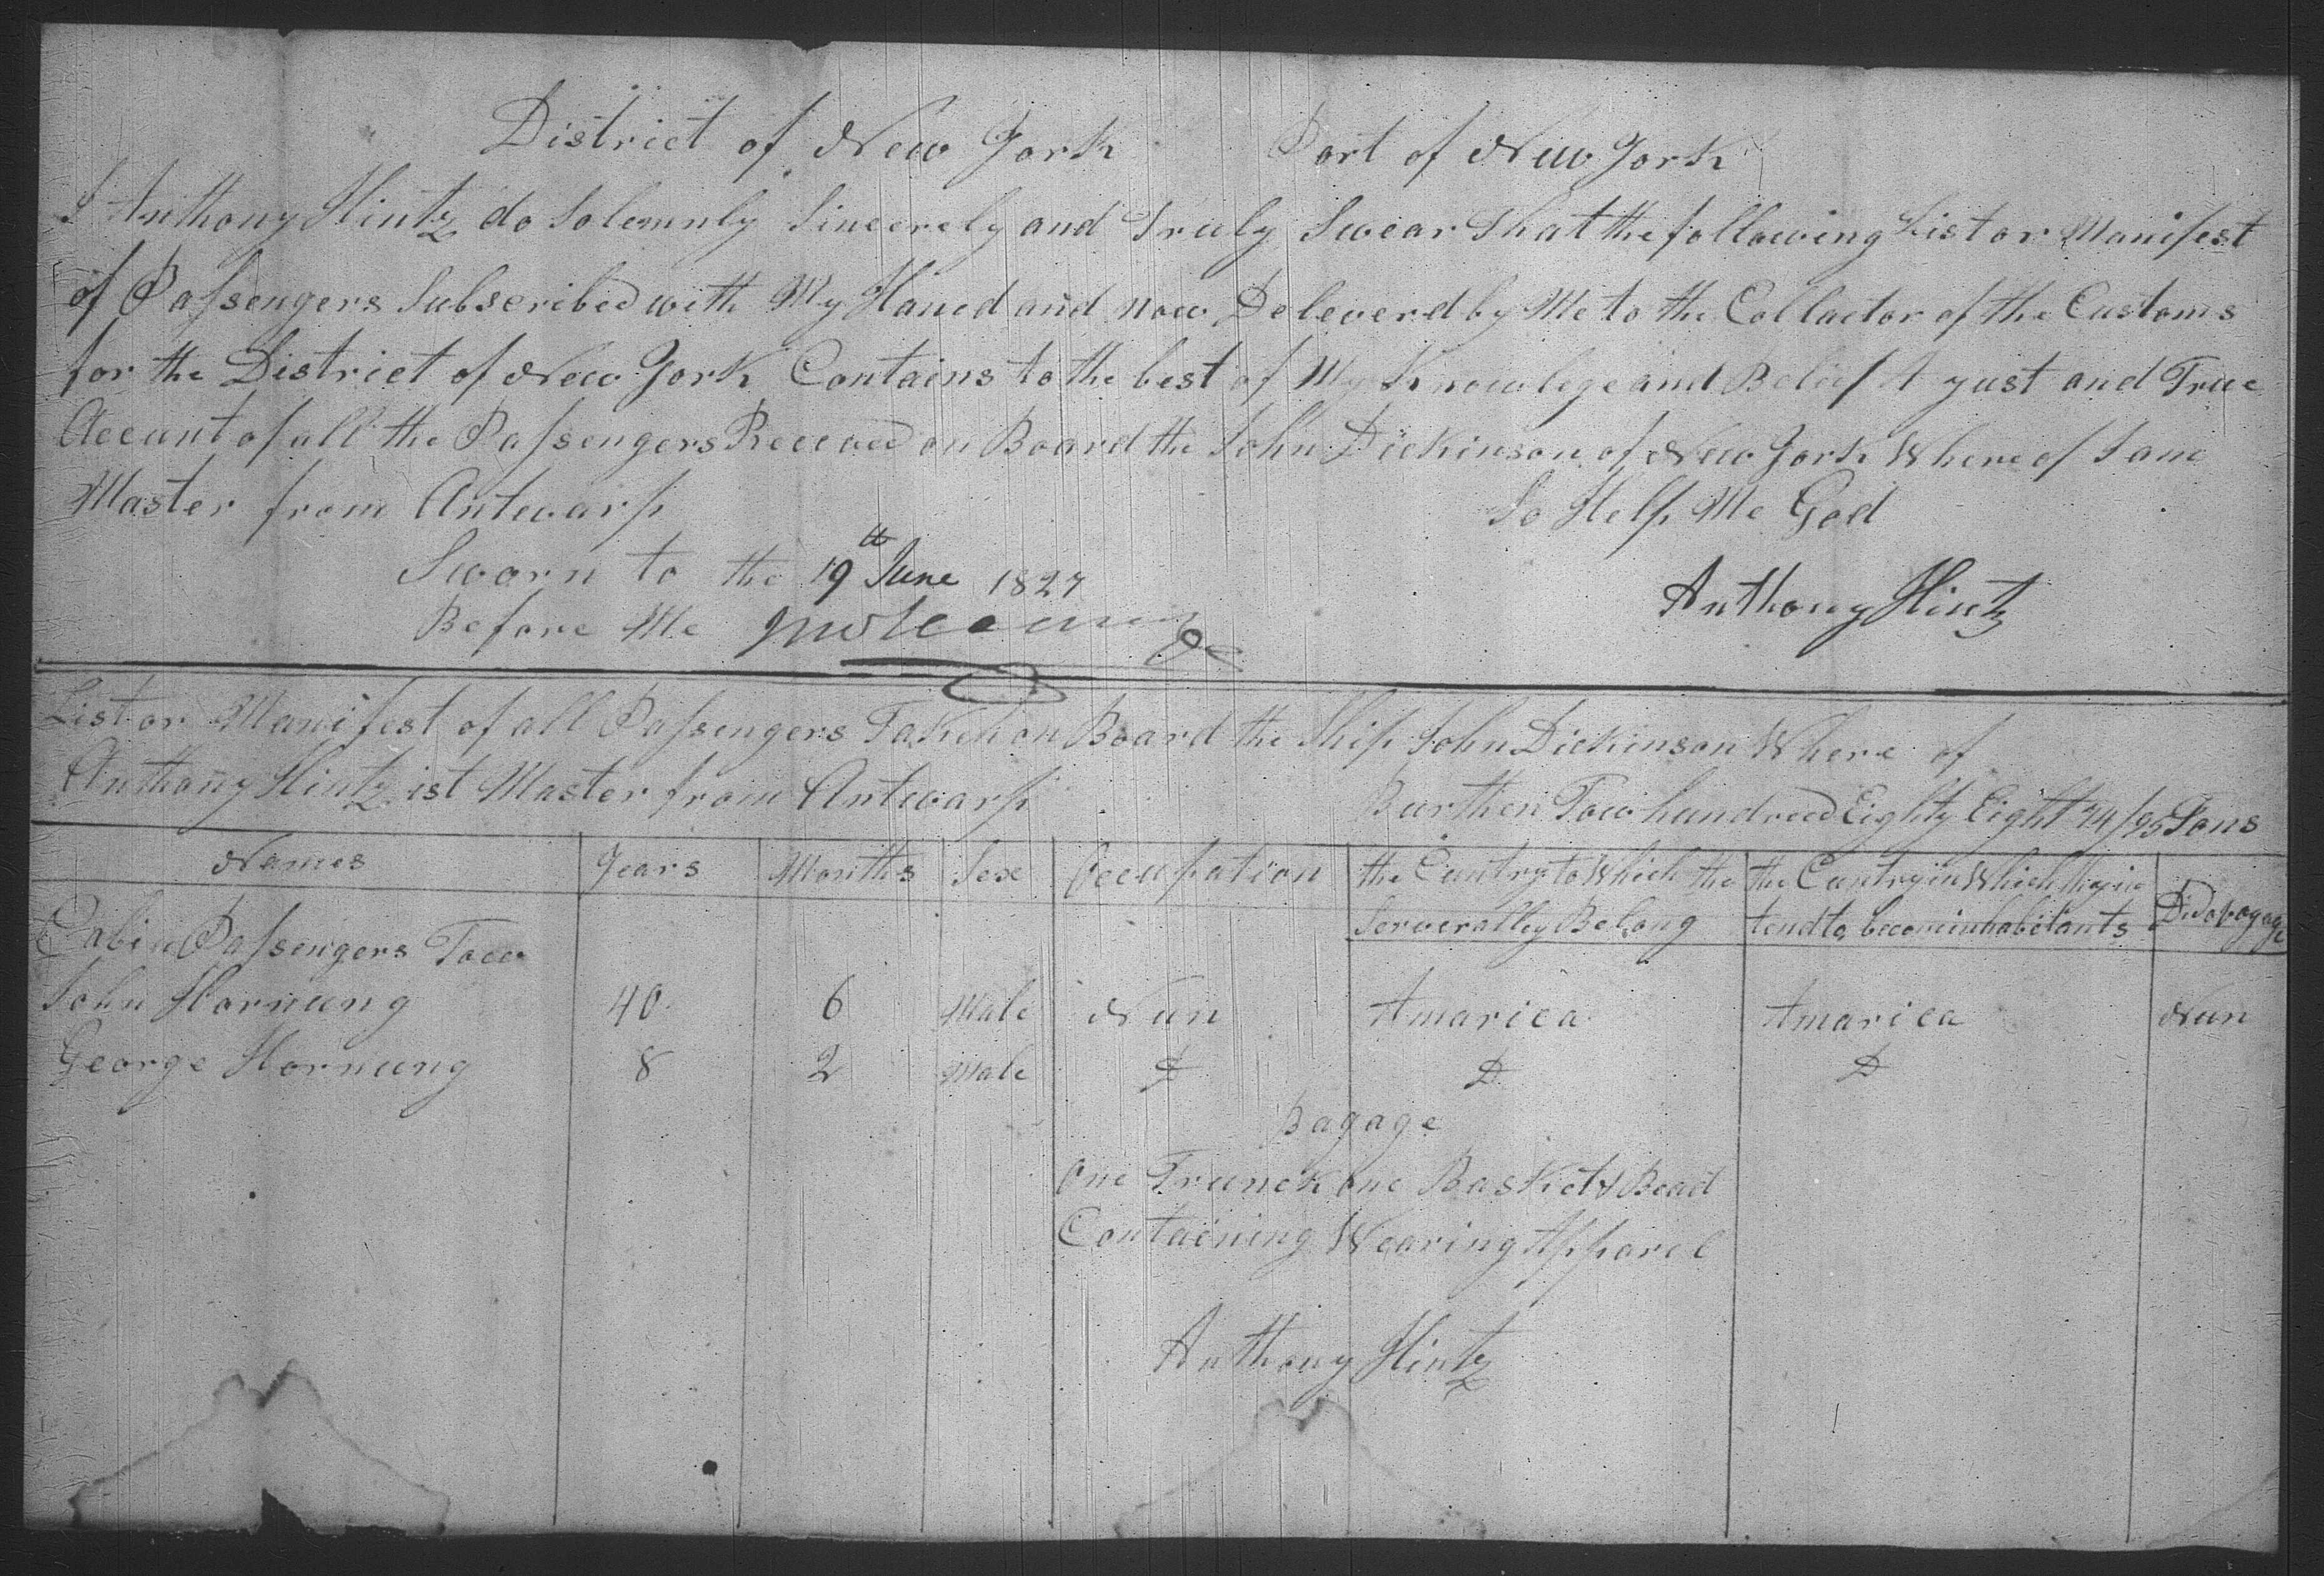 District of New York Port of New York
I Anthony Hintz do Solemnly Sincerely and Truly Swear That the following List or Manifest
of Passengers Subscribed with My Hand and now Deleverd by Me to the Collactor of the Customs
for the District of New York Contains to the best of My Knowlege and Belief A yust and True
Accunt of all the Passengers Received on Board the John Dickinson of New York Where of I am
Master from Antwarp So Help Me God
Sworn to the 19th June 1827 Anthony Hintz
Before Me
List or Manifest of all Passengers Taken on Board the Ship John Dickinson Where of
Anthony Hintz ist Master from Antwarp Burthen Tow hundred Eighty Eight 94/95 Tons
Names Years Months Sex Occupation the Cuntry to Which the the Cuntry in Which they in
Serverally Belong tend to becom inhabitants
Cabin Passengers Tow
John Hornung 40 6 Male Nun Amarica Amarica Nun
George Hornung 8 2 Male D D D
Bagage
One Trunck one Basket & Bead
Containing Wearing Apparel
Anthony Hintz